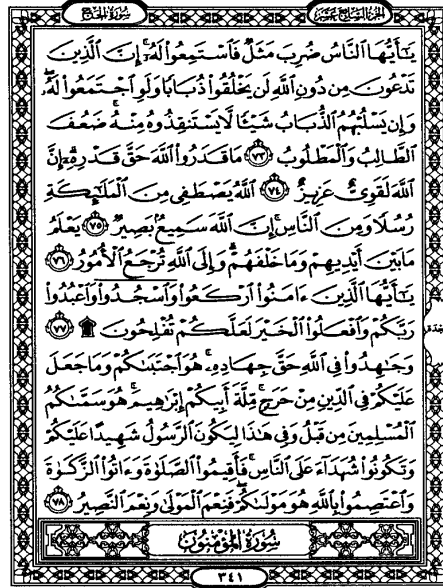 سُورَةُ الحَجِّ
الجُزْءُ السَّابِعَ عَشَرَ
يَٰٓأَيُّهَا ٱلنَّاسُ ضُرِبَ مَثَلٞ فَٱسْتَمِعُوا۟ لَهُۥٓۚ إِنَّ ٱلَّذِينَ
تَدْعُونَ مِن دُونِ ٱللَّهِ لَن يَخْلُقُوا۟ ذُبَابٗا وَلَوِ ٱجْتَمَعُوا۟ لَهُۥۖ
وَإِن يَسْلُبْهُمُ ٱلذُّبَابُ شَيْـٔٗا لَّا يَسْتَنقِذُوهُ مِنْهُۚ ضَعُفَ
ٱلطَّالِبُ وَٱلْمَطْلُوبُ ٧٣ مَا قَدَرُوا۟ ٱللَّهَ حَقَّ قَدْرِهِۦٓۚ إِنَّ
ٱللَّهَ لَقَوِيٌّ عَزِيزٌ ٧٤ ٱللَّهُ يَصْطَفِي مِنَ ٱلْمَلَٰٓئِكَةِ
رُسُلٗا وَمِنَ ٱلنَّاسِۚ إِنَّ ٱللَّهَ سَمِيعُۢ بَصِيرٞ ٧٥ يَعْلَمُ
مَا بَيْنَ أَيْدِيهِمْ وَمَا خَلْفَهُمْۚ وَإِلَى ٱللَّهِ تُرْجَعُ ٱلْأُمُورُ ٧٦
يَٰٓأَيُّهَا ٱلَّذِينَ ءَامَنُوا۟ ٱرْكَعُوا۟ وَٱسْجُدُوا۟ وَٱعْبُدُوا۟
رَبَّكُمْ وَٱفْعَلُوا۟ ٱلْخَيْرَ لَعَلَّكُمْ تُفْلِحُونَ ۩ ٧٧
وَجَٰهِدُوا۟ فِي ٱللَّهِ حَقَّ جِهَادِهِۦۚ هُوَ ٱجْتَبَىٰكُمْ وَمَا جَعَلَ
عَلَيْكُمْ فِي ٱلدِّينِ مِنْ حَرَجٖۚ مِّلَّةَ أَبِيكُمْ إِبْرَٰهِيمَۚ هُوَ سَمَّىٰكُمُ
ٱلْمُسْلِمِينَ مِن قَبْلُ وَفِي هَٰذَا لِيَكُونَ ٱلرَّسُولُ شَهِيدًا عَلَيْكُمْ
وَتَكُونُوا۟ شُهَدَآءَ عَلَى ٱلنَّاسِۚ فَأَقِيمُوا۟ ٱلصَّلَوٰةَ وَءَاتُوا۟ ٱلزَّكَوٰةَ
وَٱعْتَصِمُوا۟ بِٱللَّهِ هُوَ مَوْلَىٰكُمْۖ فَنِعْمَ ٱلْمَوْلَىٰ وَنِعْمَ ٱلنَّصِيرُ ٧٨
سُورَةُ المُؤْمِنُونَ
٣٤١